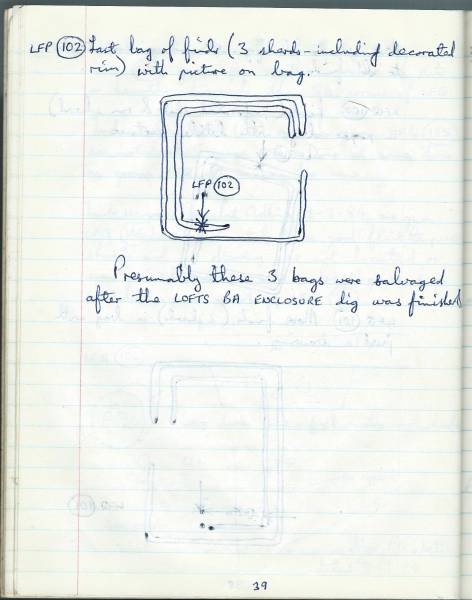 LFP (102) Last bag of finds (3 sherds - including decorated
rim) with picture on bag.
LFP (102)
Presumably these 3 bags were salvaged
after the LOFTS BA ENCLOSURE dig was finished
39